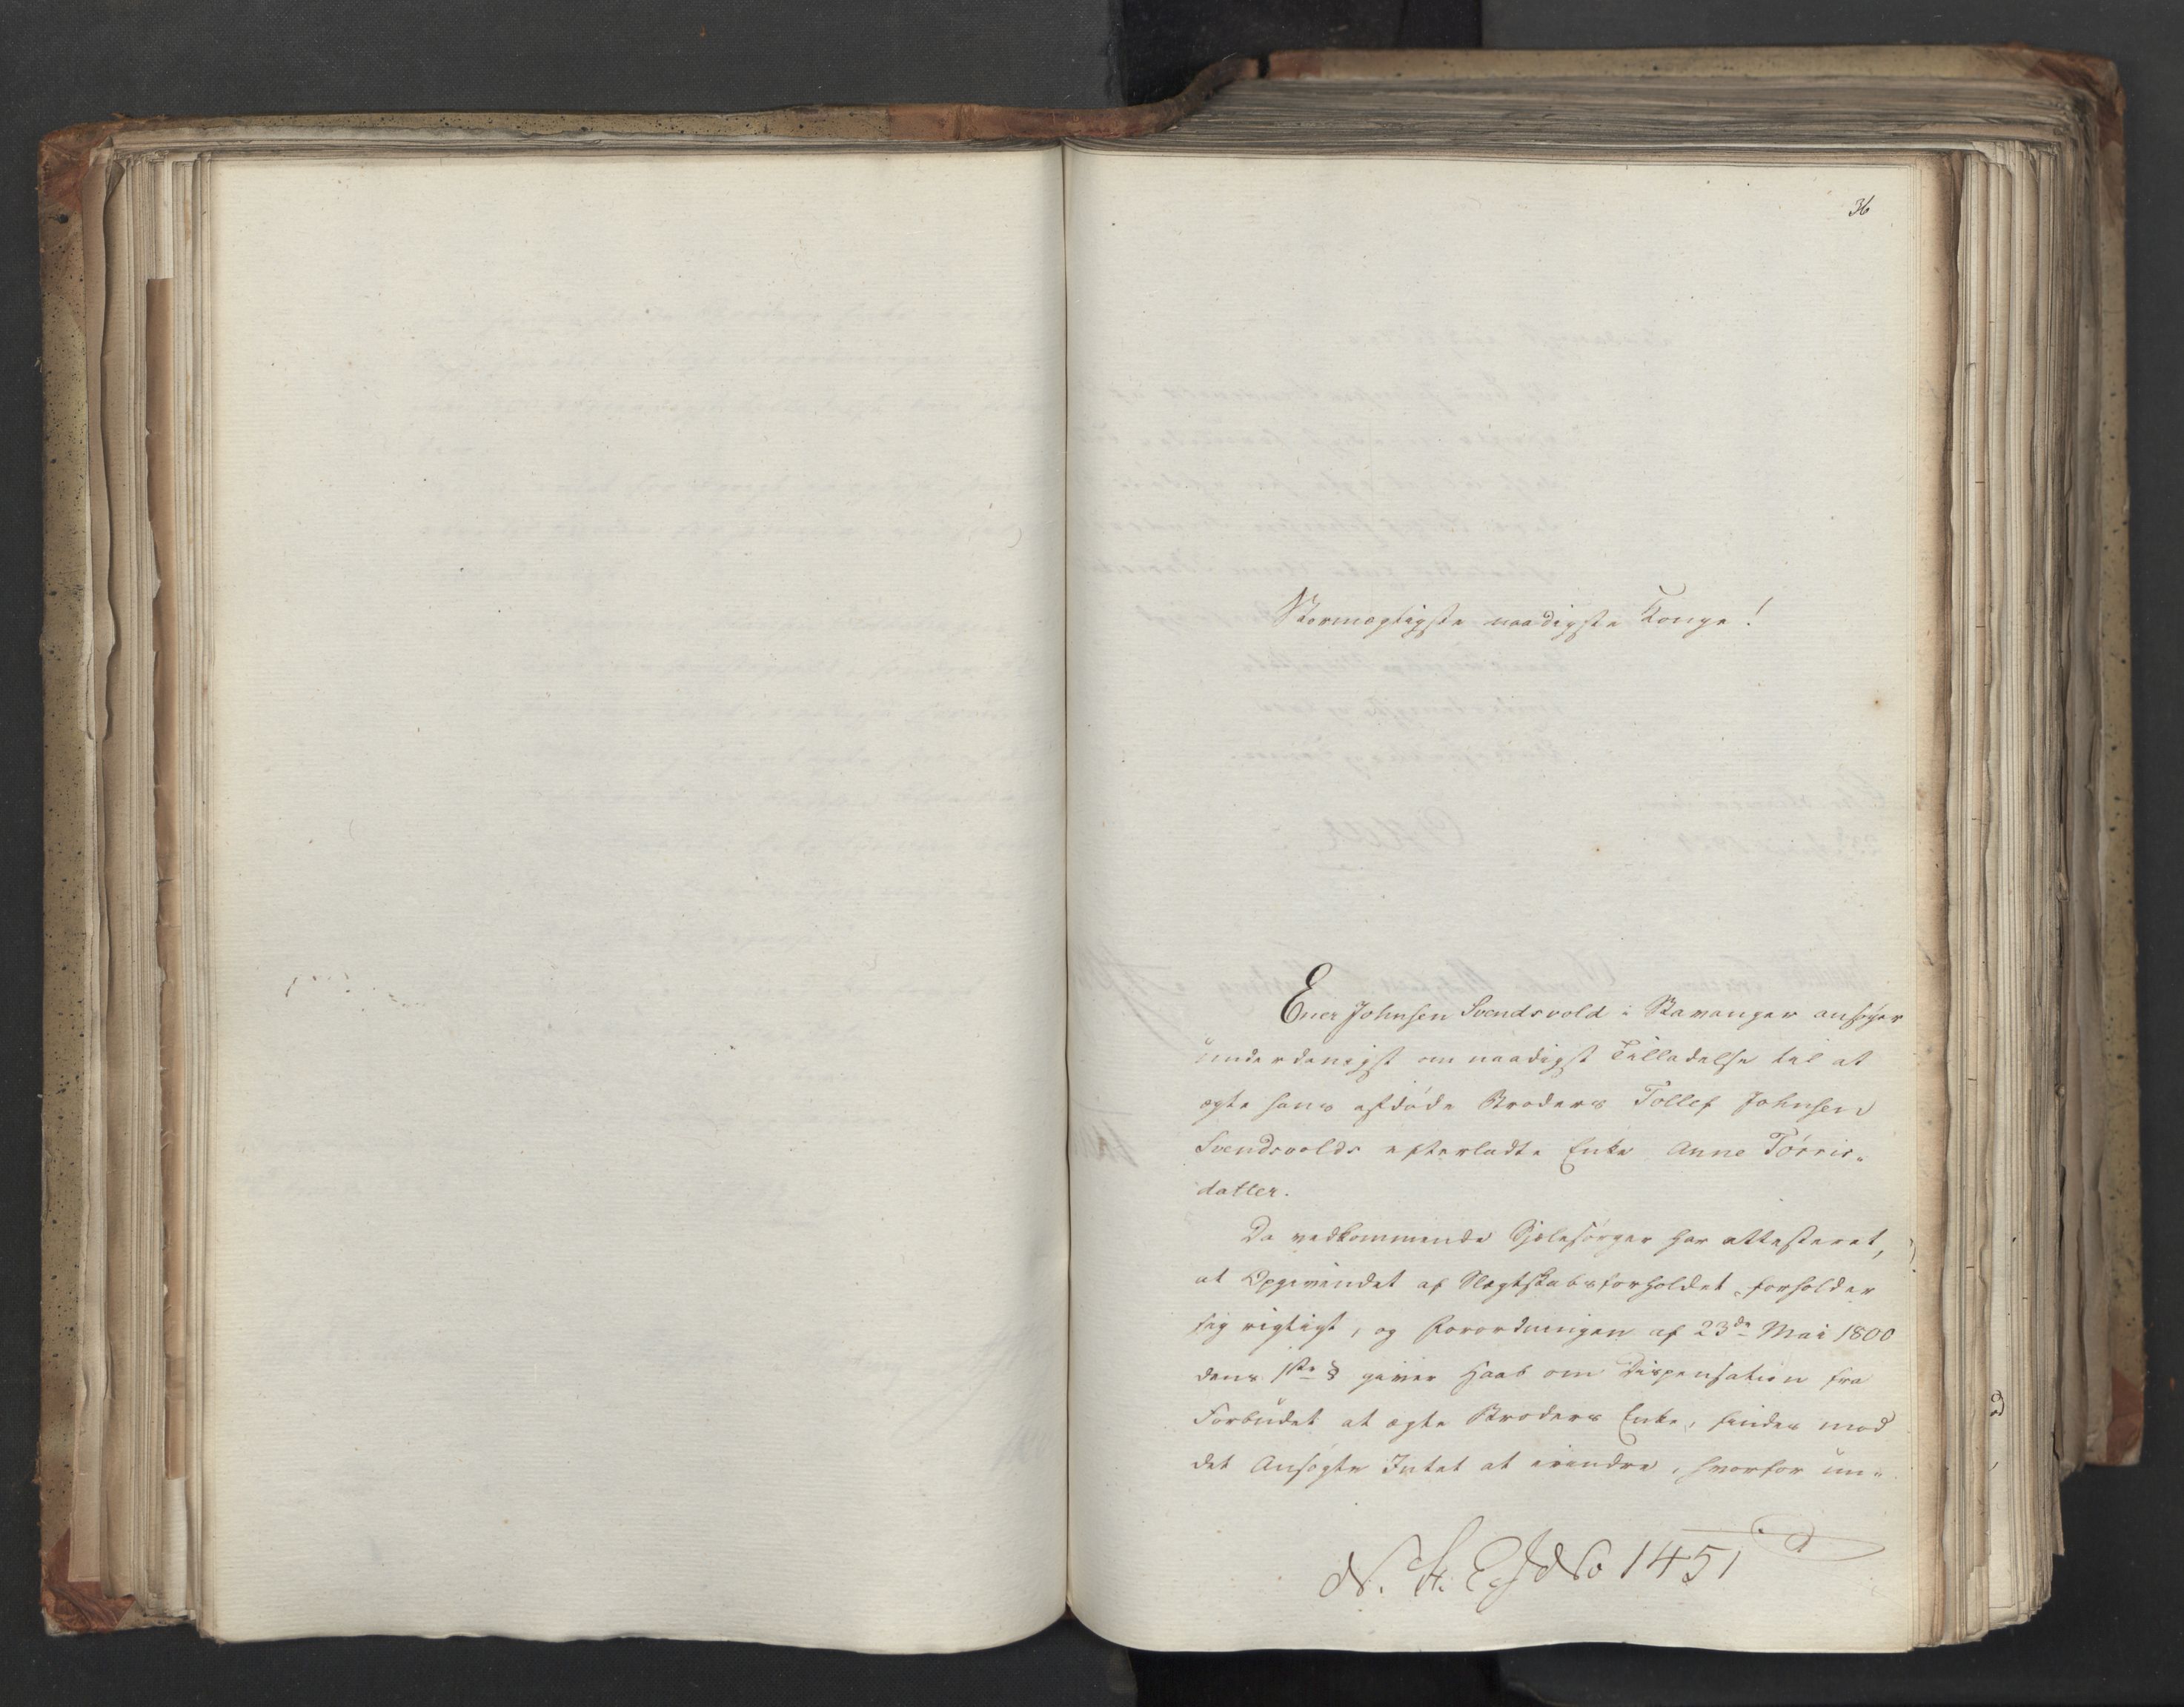 36
Stormægtigste naadigste Konge!
Ener Johnsen Svendsvold i Stavanger ansøger
underdanigst om naadigst Tilladelse til at
ægte hans afdøde Broders Tollef Johnsen
Svendsvolds efterladte Enke Anne Tørris-
datter.
Da vedkommende Sjelesørger har attesteret,
at Opgivendet af Slægtskabsforholdet forholder
sig rigtigt, og Forordningen af 23de Mai 1800
dens 1ste § giver Haab om Dispensation fra
Forbudet at ægte Broders Enke, findes mod
det Ansøgte Intet at erindre, hvorfor un-
No 1451